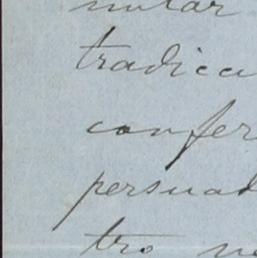 mular
tradica
confer
persuad
tro ne